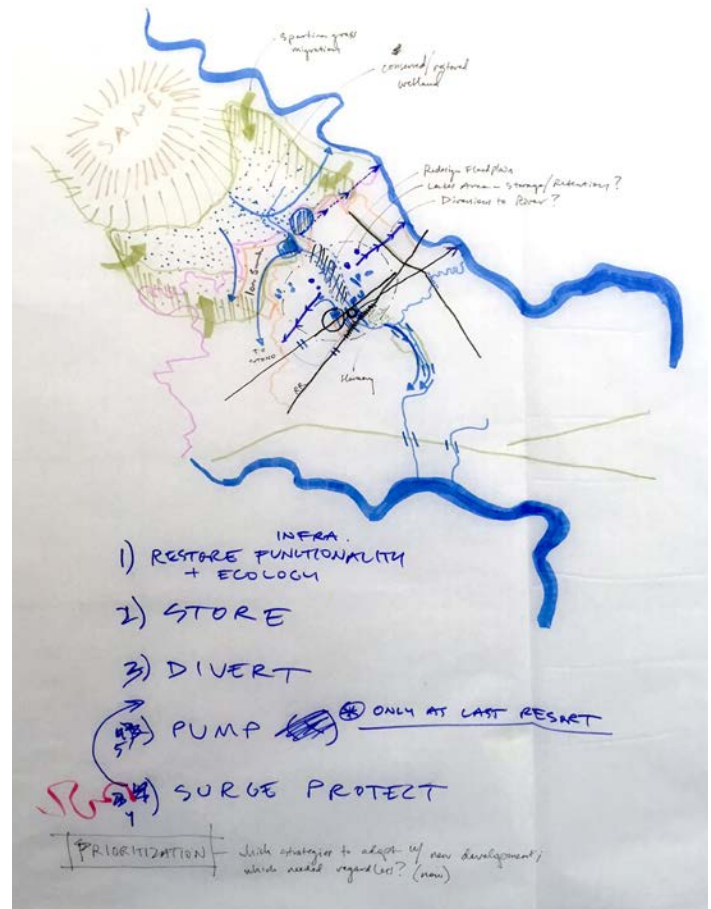 Spartina grass
migration
conserved/restored
wetland
SAND
Redesign Floodplain
Lakes Area - Storage/Retention?
Diversions to River?
TO
RR
INFRA.
1) RESTORE FUNCTIONALITY
+ ECOLOGY
2) STORE
3) DIVERT
5) PUMP * ONLY AS LAST RESORT
4) SURGE PROTECT
PRIORITIZATION - which strategies to adopt w/ new development;
which needed regardless? (now)